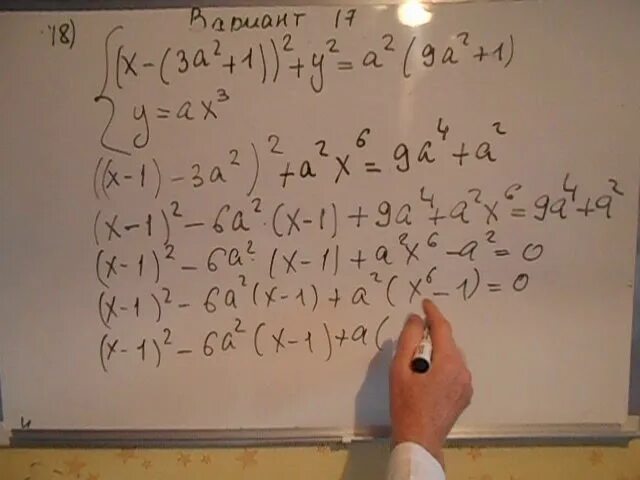 Вариант 17
18)
(x-(3a²+1))²+y²=a²(9a²+1)
y=ax³
((x-1)-3a²)²+a²x⁶=9a⁴+a²
(x-1)²-6a²·(x-1)+9a⁴+a²x⁶=9a⁴+a²
(x-1)²-6a²·(x-1)+a²x⁶-a²=0
(x-1)²-6a²(x-1)+a²(x⁶-1)=0
(x-1)²-6a²(x-1)+a(